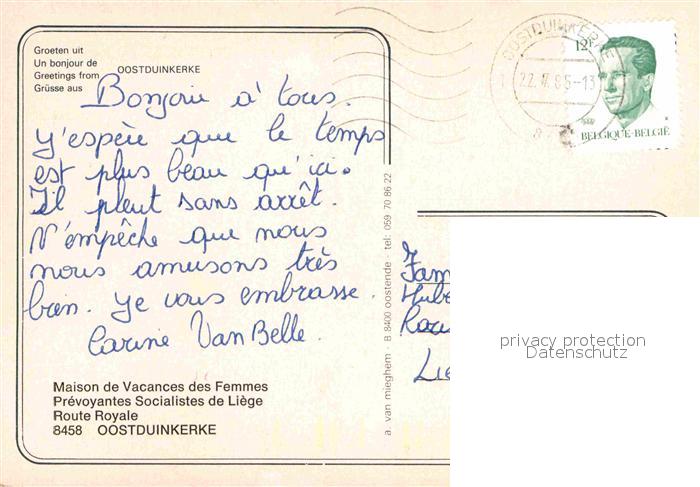 Groeten uit
Un bonjour de
Greetings from OOSTDUINKERKE
Grüsse aus
Bonjour à tous.
J'espère que le temps
est plus beau qu'ici.
Il pleut sans arrêt.
N'empêche que nous
nous amusons très
bien. Je vous embrasse.
Carine VanBelle.
Maison de Vacances des Femmes
Prévoyantes Socialistes de Liège
Route Royale
8458 OOSTDUINKERKE
a. van mieghem · B 8400 oostende · tel: 059 70 86 22
OOSTDUINKERKE
22.
12F
BELGIQUE-BELGIË
Fam
Hube
Lie
privacy protection
Datenschutz